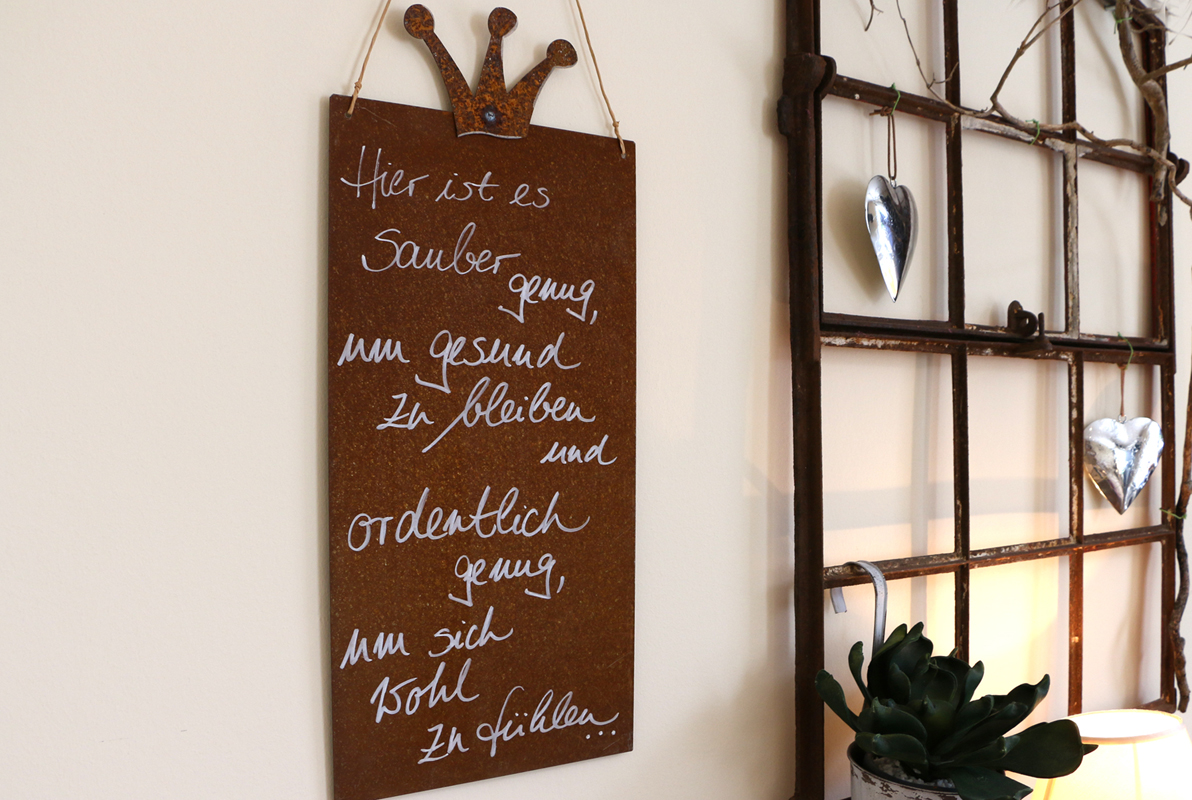 Hier ist es
Sauber
genug,
um gesund
zu bleiben
und
ordentlich
genug,
um sich
wohl
zu fühlen...